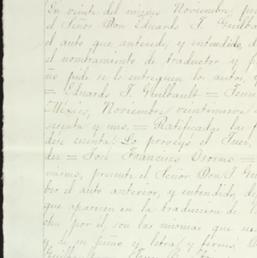 En veinte del mismo Noviembre, pre
el Señor Don Eduardo J. Guilbault
el auto que antecede, y entendido, d
el nombramiento de traductor y
pide se le entreguen los autos, y
= Eduardo J. Guilbault =
México, Noviembre veintinueve
cuenta y uno. = Ratificadas las f
dése cuenta. Lo proveyó el Juez,
= José Francisco
mismo, presente el Señor Don J. Guil
el auto anterior, y entendido, d
que aparecen en la traducción de
por él, son las mismas que
y de su puño y letra, y firmó.